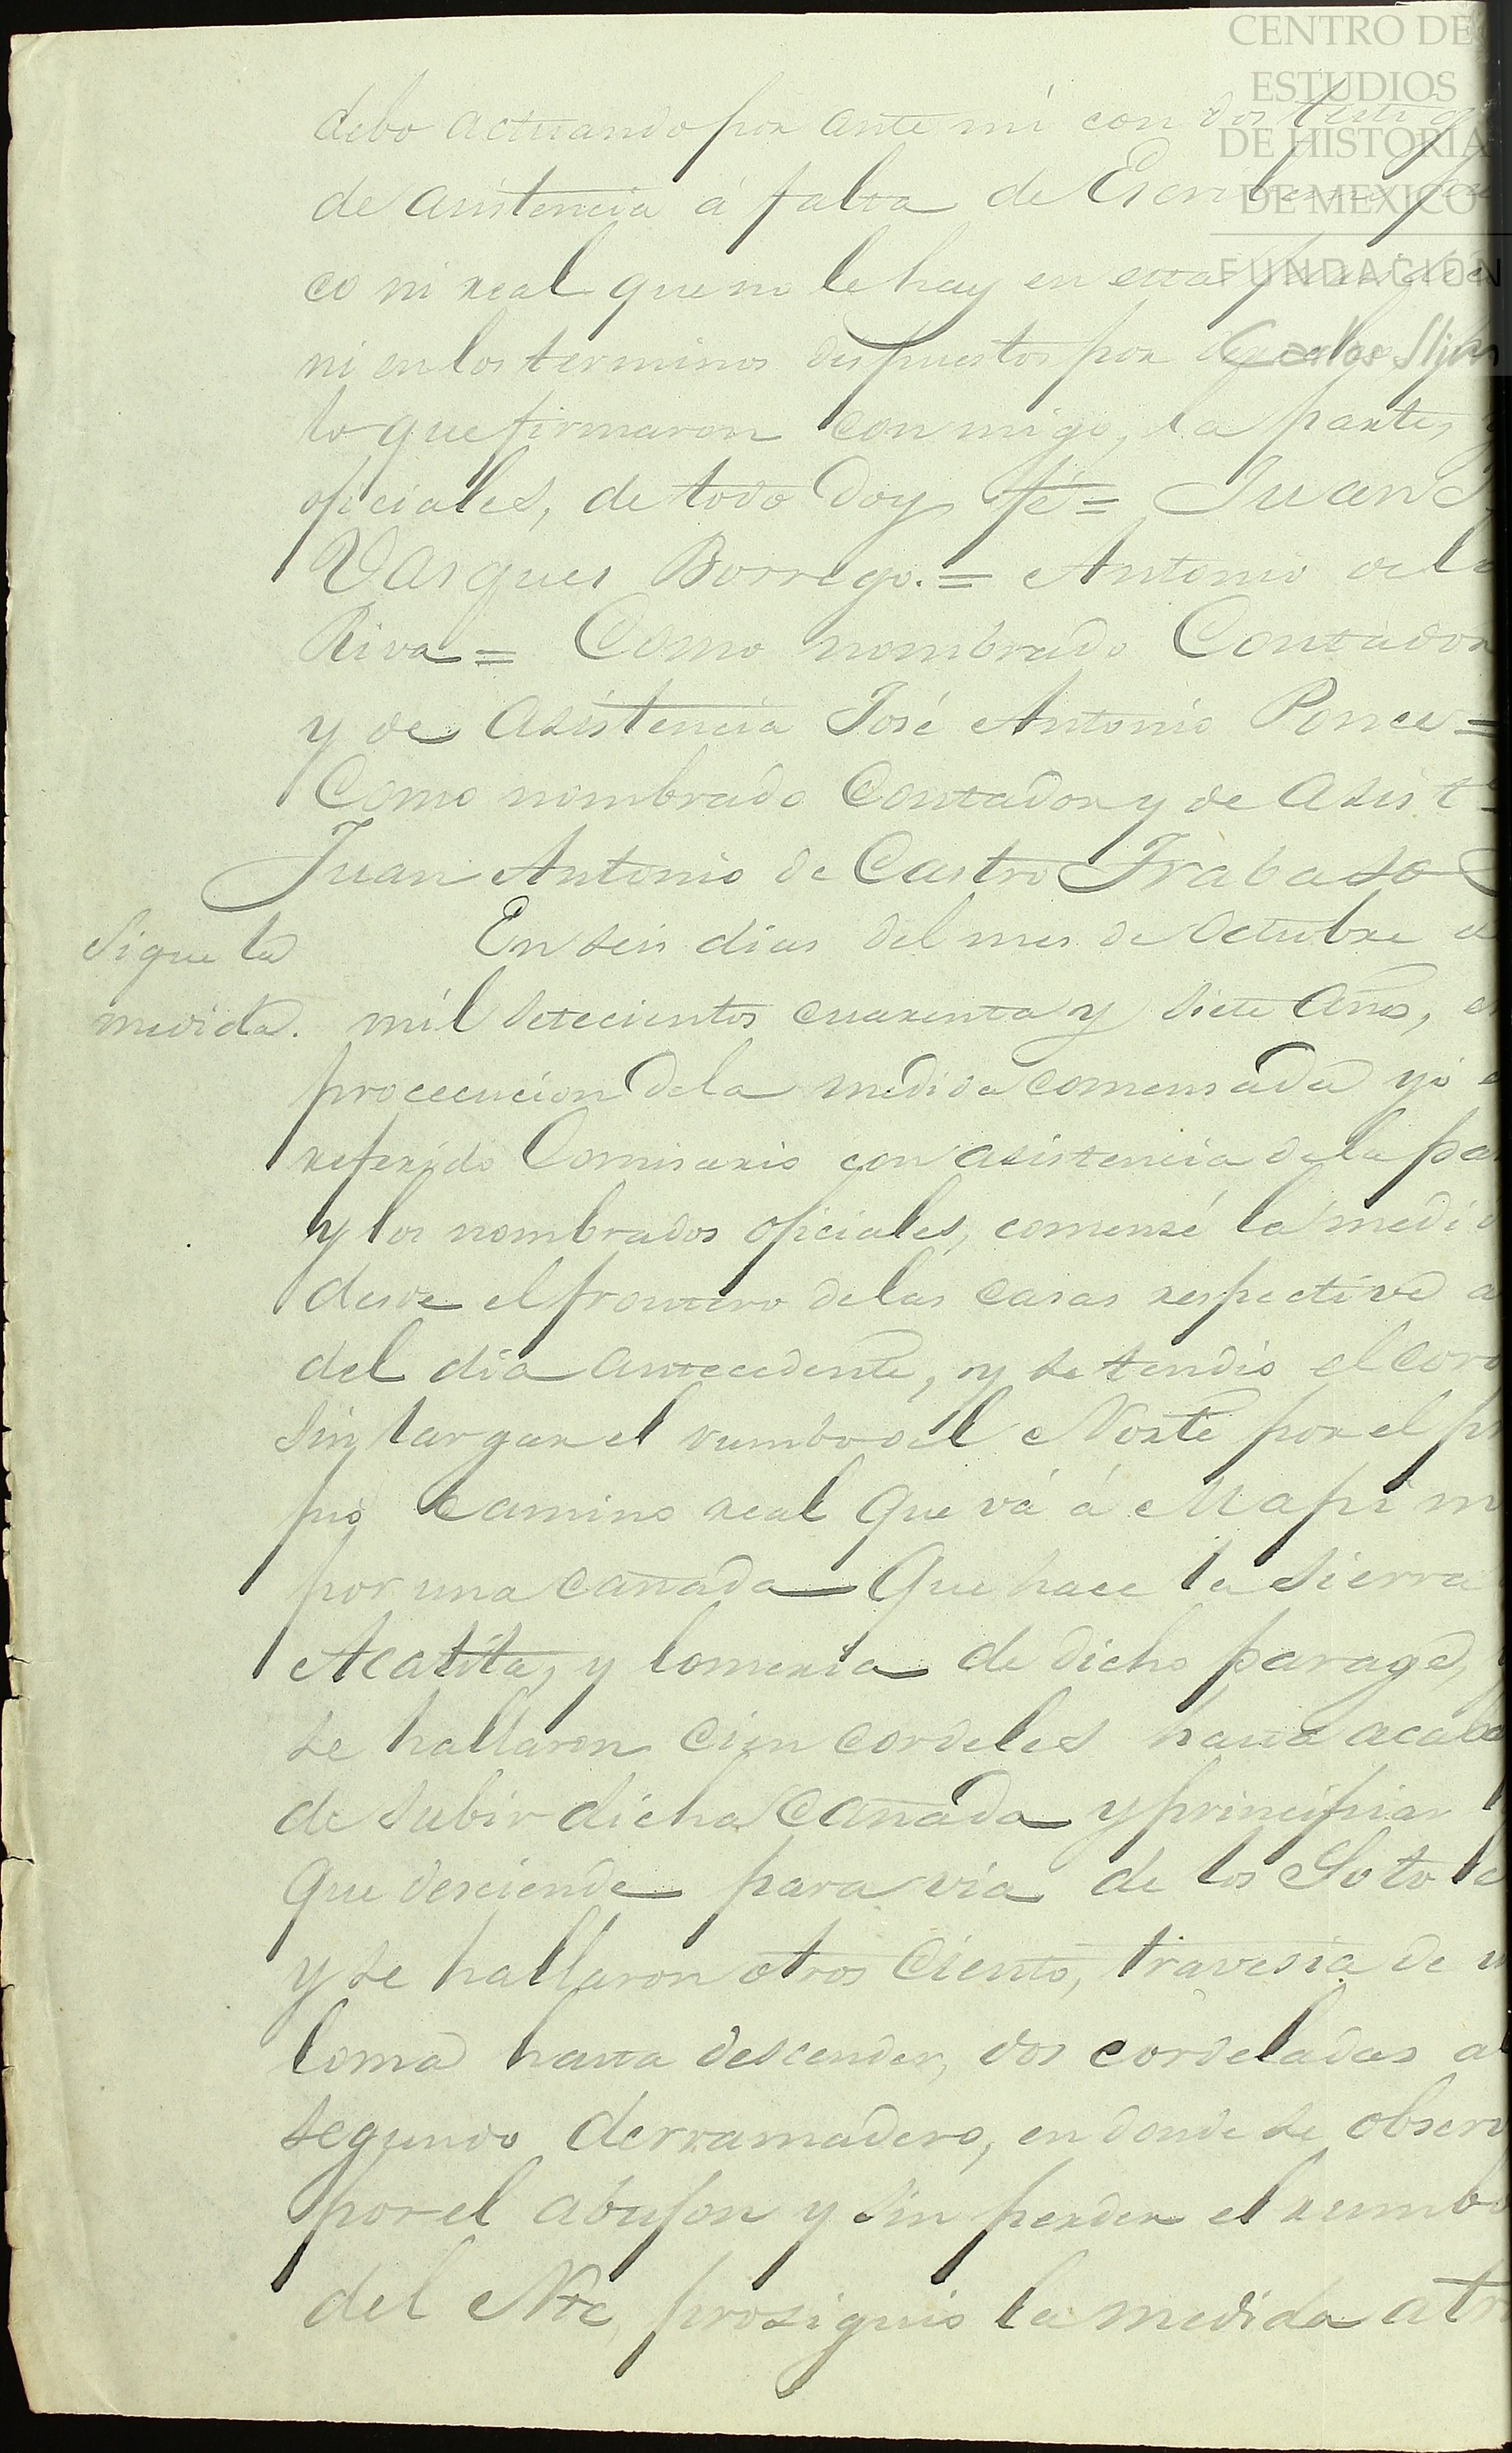 CENTRO DE
ESTUDIOS
DE HISTORIA
DE MEXICO
FUNDACIÓN
Carlos Slim
debo actuando por ante mí con dos testig
de asistencia á falta de Escribano
co ni real que no le hay en esta
ni en los terminos dispuestos por
lo que firmaron conmigo, la parte, y
oficiales, de todo doy fé = Juan
Vasques Borrego. = Antonio de la
Riva = Como nombrado Contador
y de asistencia José Antonio Ponce =
Como nombrado Contador y de asist
Juan Antonio de Castro Frabaso
Sigue la
medida.
En seis dias del mes de Octubre d
mil setecientos cuarenta y siete años, e
procecucion de la medida comensada yó e
referido Comisario con asistencia de la par
y los nombrados oficiales, comensé la medid
desde el frontero de las casas respective a
del dia antecedente, y se tendió el cord
sin largar el rumbo del Norte por el pr
pio camino real que vá á Mapim
por una cañada que hace la Sierra
Acatita, y lomeria de dicho parage, y
se hallaron cien cordeles hasta acaba
de subir dicha cañada y principiar l
que desciende para via de los Sotole
y se hallaron otros ciento, travesia de u
loma hasta descender, dos cordeladas al
segundo derramadero, en donde se observ
por el abujon y sin perder el rumbo
del Nte prosiguió la medida atr